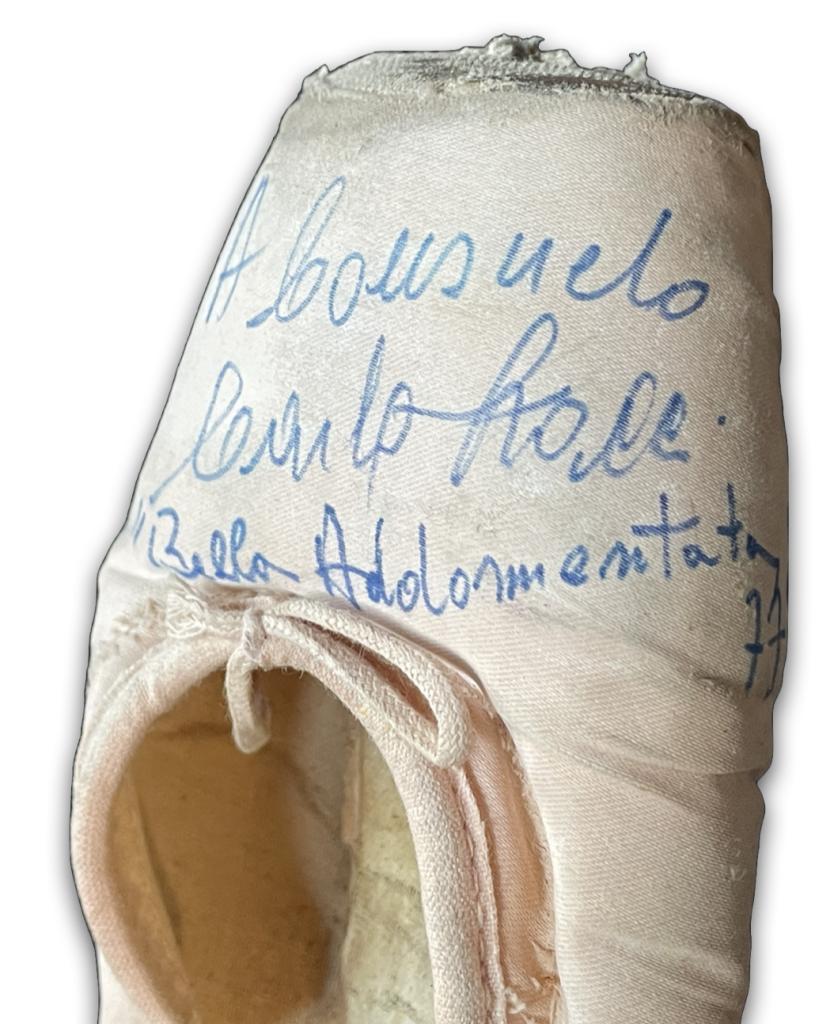 A Consuelo
Carla Fracci.
"Bella Addormentata"
77